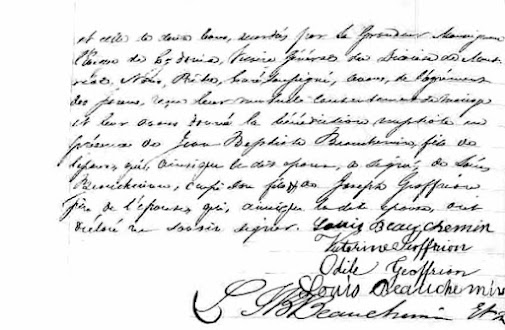 et celle de deux bans, accordés par Sa Grandeur Monseigneur
l'Evêque de Vicaire Général du Diocèse de Mont
réal, Nous, Prêtre, Curé soussigné, avons, de l'agrément
des parens, reçu leur mutuel consentement de mariage
et leur avons donné la bénédiction nuptiale en
présence de Jean Baptiste Beauchemin, fils de
l'époux, qui, ainsi que le dit époux, a signé, de Louis
Beauchemin, fils de Joseph Geoffrion
père de l'épouse, qui, ainsi que le dit époux, ont
déclaré ne savoir signer. Louis Beauchemin
Victorine Geoffrion
Odile Geoffrion
Louis Beauchemin
J N B Beauchemin